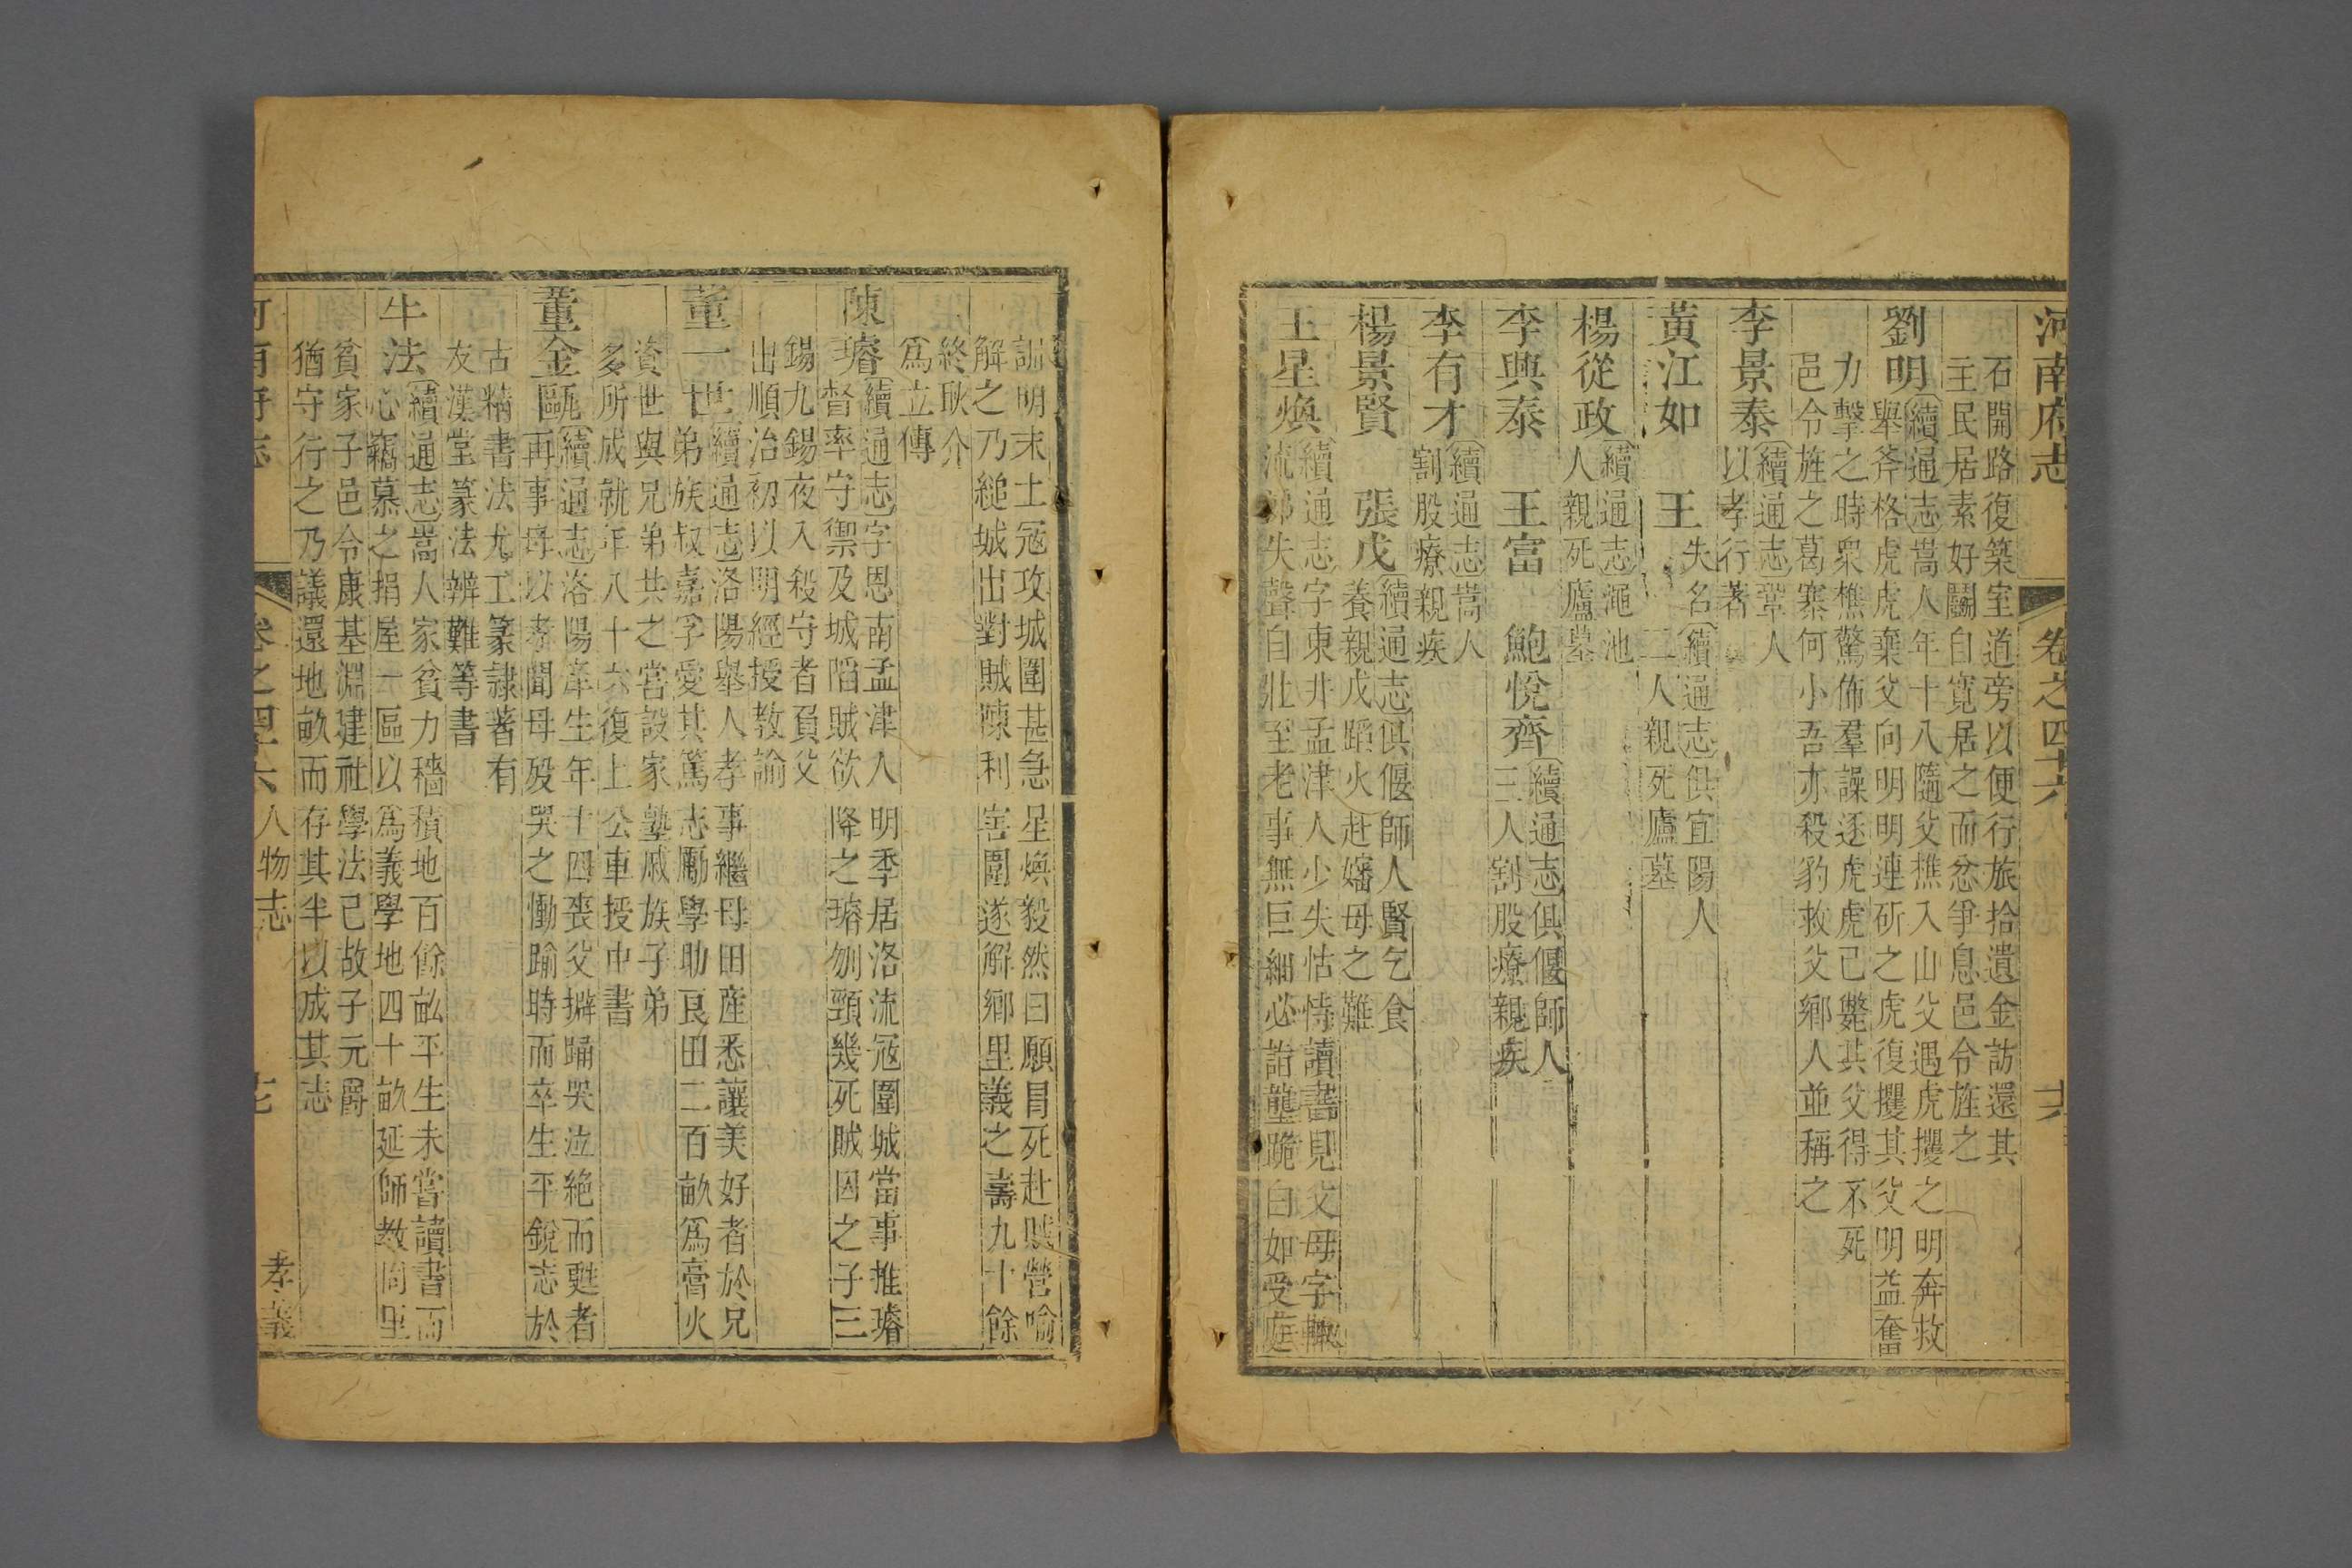 河南府志 卷之四十六
石開路復築室道旁以便行旅拾遺金訪還其
主民居素好鬭自寛居之而忿爭息邑令旌之
劉明續通志嵩人年十八隨父樵入山父遇虎攫之明奔救
舉斧格虎虎棄父向明明連斫之虎復攫其父明益奮
力擊之時衆樵驚佈羣譟逐虎虎己斃其父得不死
邑令旌之葛寨何小吾亦殺豹救父鄉人並稱之
李景泰續通志鞏人
以孝行著
黃江如 王失名續通志俱宜陽人
二人親死廬墓
楊從政續通志澠池
人親死廬墓
李興泰 王富 鮑悅齊續通志俱偃師人
三人割股療親疾
李有才續通志嵩人
割股療親疾
楊景賢 張戊續通志俱偃師人賢乞食
養親戊蹈火赴嬸母之難
王星煥續通志字東井孟津人少失怙恃讀書見父母字輒
流涕失聲自壯至老事無巨細必詣壟跪白如受庭
訓明末土冦攻城圍甚急星煥毅然曰願冒死赴賊營喻
解之乃縋城出對賊陳利害圍遂解鄉里義之壽九十餘
終耿介
爲立傳
陳瑃續通志字恩南孟津人明季居洛流冦圍城當事推瑃
督率守禦及城陷賊欲降之瑃刎頸幾死賊囚之子三
錫九錫夜入殺守者負父
出順治初以明經授教諭
董一續通志洛陽舉人孝事繼母田産悉讓美好者於兄
弟族叔嘉孚愛其篤志勵學助良田二百畝爲膏火
資世與兄弟共之嘗設家塾戚族子弟
多所成就年八十六復上公車授中書
董金甌續通志洛陽庠生年十四喪父擗踊哭泣絕而甦者
再事母以孝聞母歿哭之慟踰時而卒生平銳志於
古精書法尤工篆隷著有
友漢堂篆法辨難等書
牛法續通志嵩人家貧力穡積地百餘畝平生未嘗讀書而
心竊慕之捐屋一區以爲義學地四十畝延師教閭里
貧家子邑令康基淵建社學法己故子元爵
猶守行之乃議還地畝而存其半以成其志
河南府志 卷之四十六 人物志 孝義